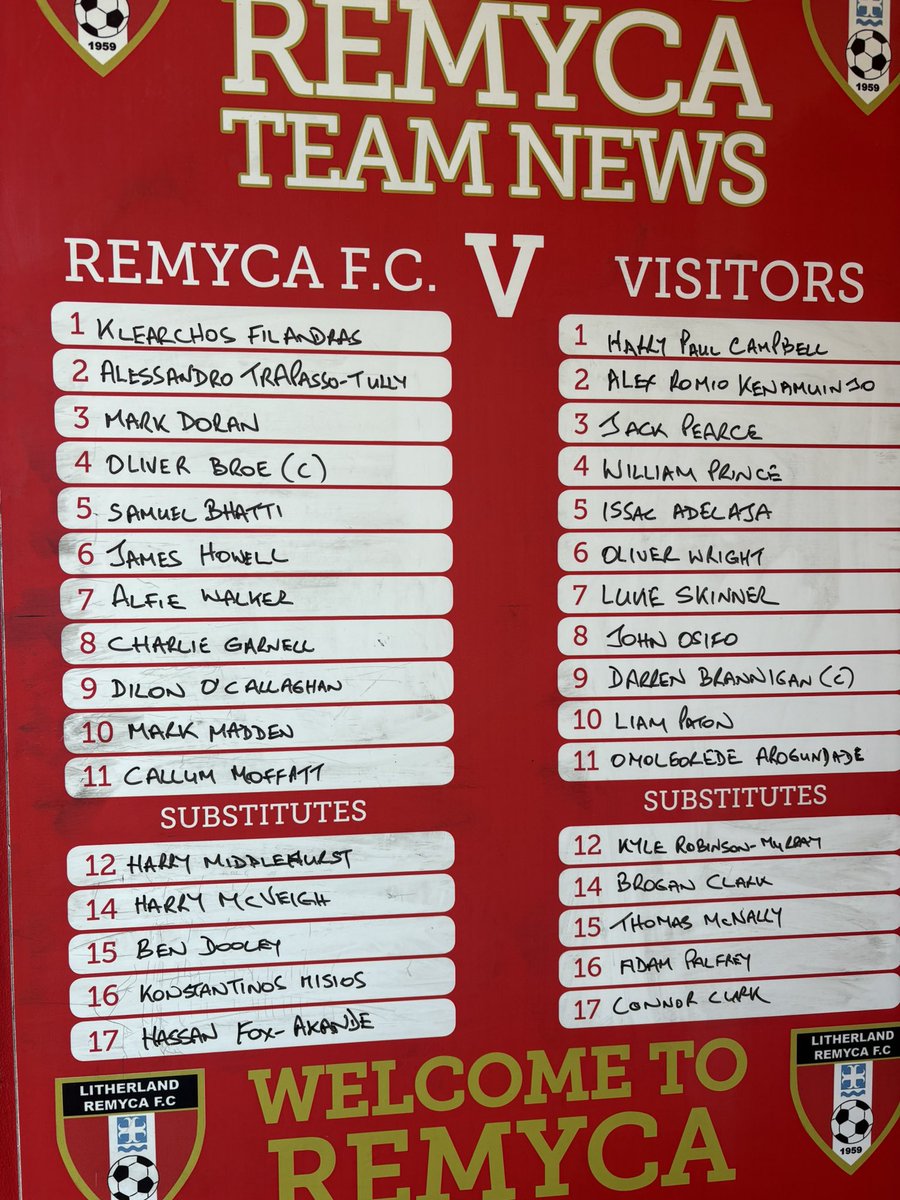 1959
1959
REMYCA
TEAM NEWS
REMYCA F.C. V VISITORS
1 KLEARCHOS FILANDRAS
2 ALESSANDRO TRAPASSO-TULLY
3 MARK DORAN
4 OLIVER BROE (C)
5 SAMUEL BHATTI
6 JAMES HOWELL
7 ALFIE WALKER
8 CHARLIE GARNELL
9 DILON O'CALLAGHAN
10 MARK MADDEN
11 CALLUM MOFFATT
SUBSTITUTES
12 HARRY MIDDLEHURST
14 HARRY MCVEIGH
15 BEN DOOLEY
16 KONSTANTINOS MISIOS
17 HASSAN FOX-AKANDE
1 HARRY PAUL CAMPBELL
2 ALEX ROMIO KENAMUINJO
3 JACK PEARCE
4 WILLIAM PRINCE
5 ISSAC ADELAJA
6 OLIVER WRIGHT
7 LUKE SKINNER
8 JOHN OSIFO
9 DARREN BRANNIGAN (C)
10 LIAM PATON
11 OMOLEOREDE AROGUNDADE
SUBSTITUTES
12 KYLE ROBINSON-MURRAY
14 BROGAN CLARK
15 THOMAS MCNALLY
16 ADAM PALFREY
17 CONNOR CLARK
LITHERLAND
REMYCA F.C
WELCOME TO
REMYCA
LITHERLAND
REMYCA F.C
1959